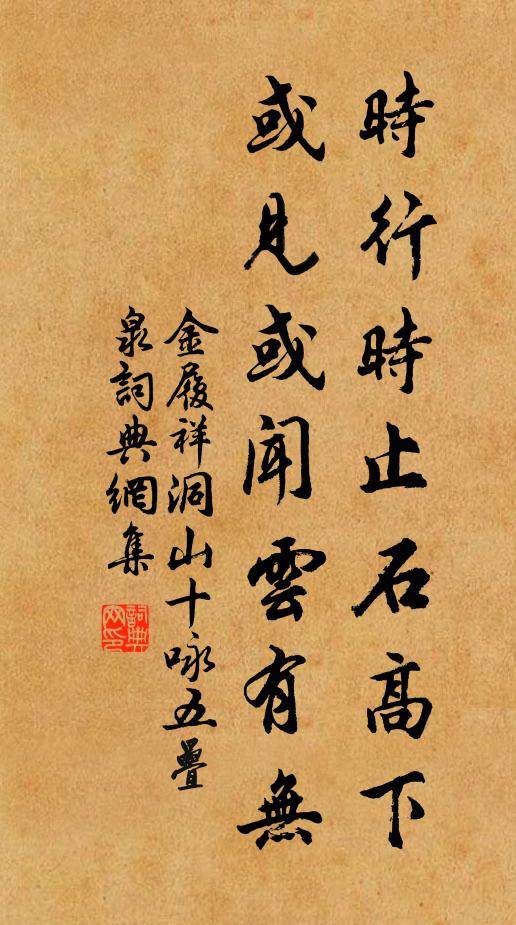 時行時止石高下
或見或聞雲有無
金履祥洞山十咏五疊
泉詞典網集
詞典網印